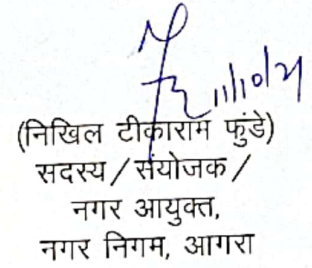 11/10/21
(निखिल टीकाराम फुंडे)
सदस्य/संयोजक/
नगर आयुक्त,
नगर निगम, आगरा